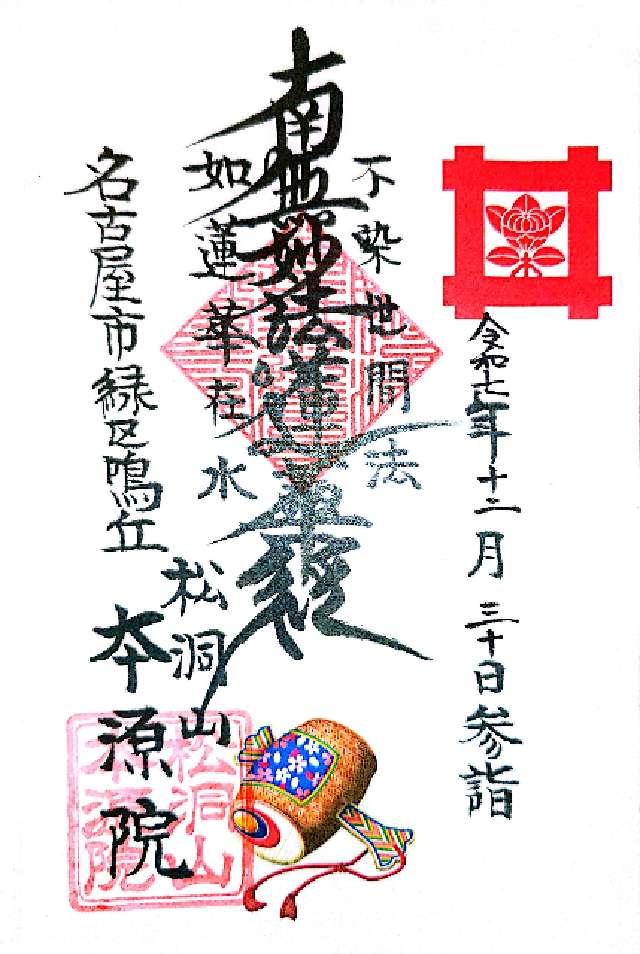 令和七年十二月三十日参詣
不染世間法
南無妙法蓮華経
如蓮華在水
松洞山
名古屋市緑区鳴丘
本源院
松洞山
本源院